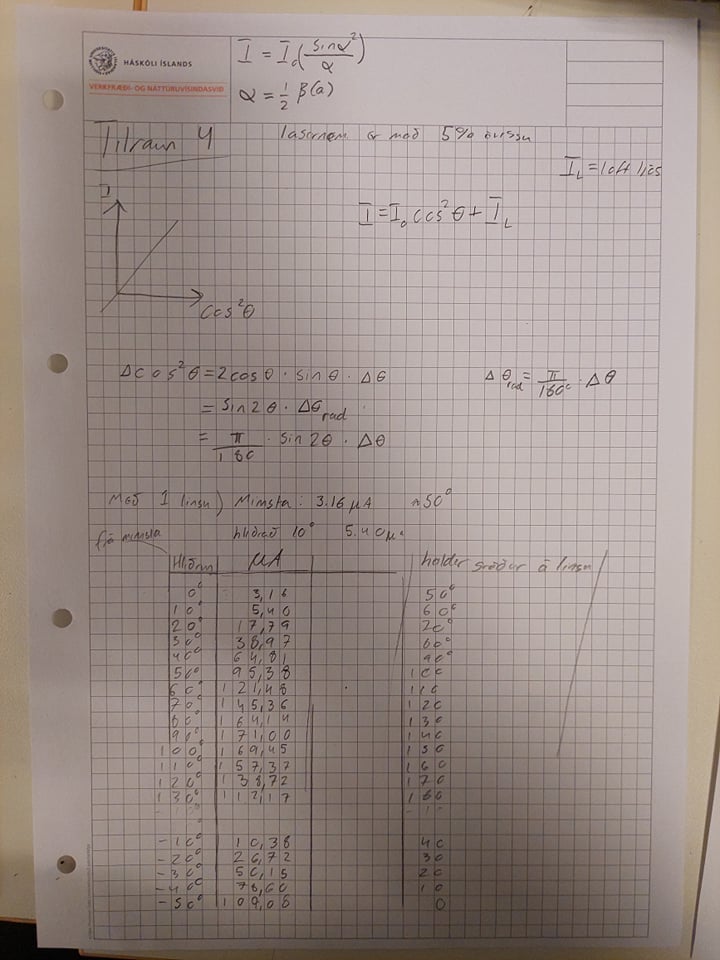 HÁSKÓLI ÍSLANDS
VERKFRÆÐI- OG NÁTTÚRUVÍSINDASVIÐ
I = I₀(sinα²/α)
α = 1/2 β(a)
Tilraun 4
lasernem er með 5% óvissu
I_L = loft ljós
I
I = I₀ cos²θ + I_L
cos²θ
Δcos²θ = 2cosθ · sinθ · Δθ
Δθ_rad = π/180° · Δθ
= sin2θ · Δθ_rad
= π/180 · sin2θ · Δθ
Með 1 linsu) Minnsta: 3.16 μA ≈50°
hliðrað 10° 5.40μ
frá minnsta
Hliðrun μA halder gráður á linsu
0° 3,16 50°
10° 5,40 60°
20° 17,79 70°
30° 38,97 80°
40° 64,81 90°
50° 95,38 100
60° 121,48 110
70° 145,36 120
80° 164,14 130
90° 171,00 140
100° 169,45 150
110° 157,37 160
120° 138,72 170
130° 112,17 180
-10° 10,38 40
-20° 26,72 30
-30° 50,15 20
-40° 78,60 10
-50° 109,06 0